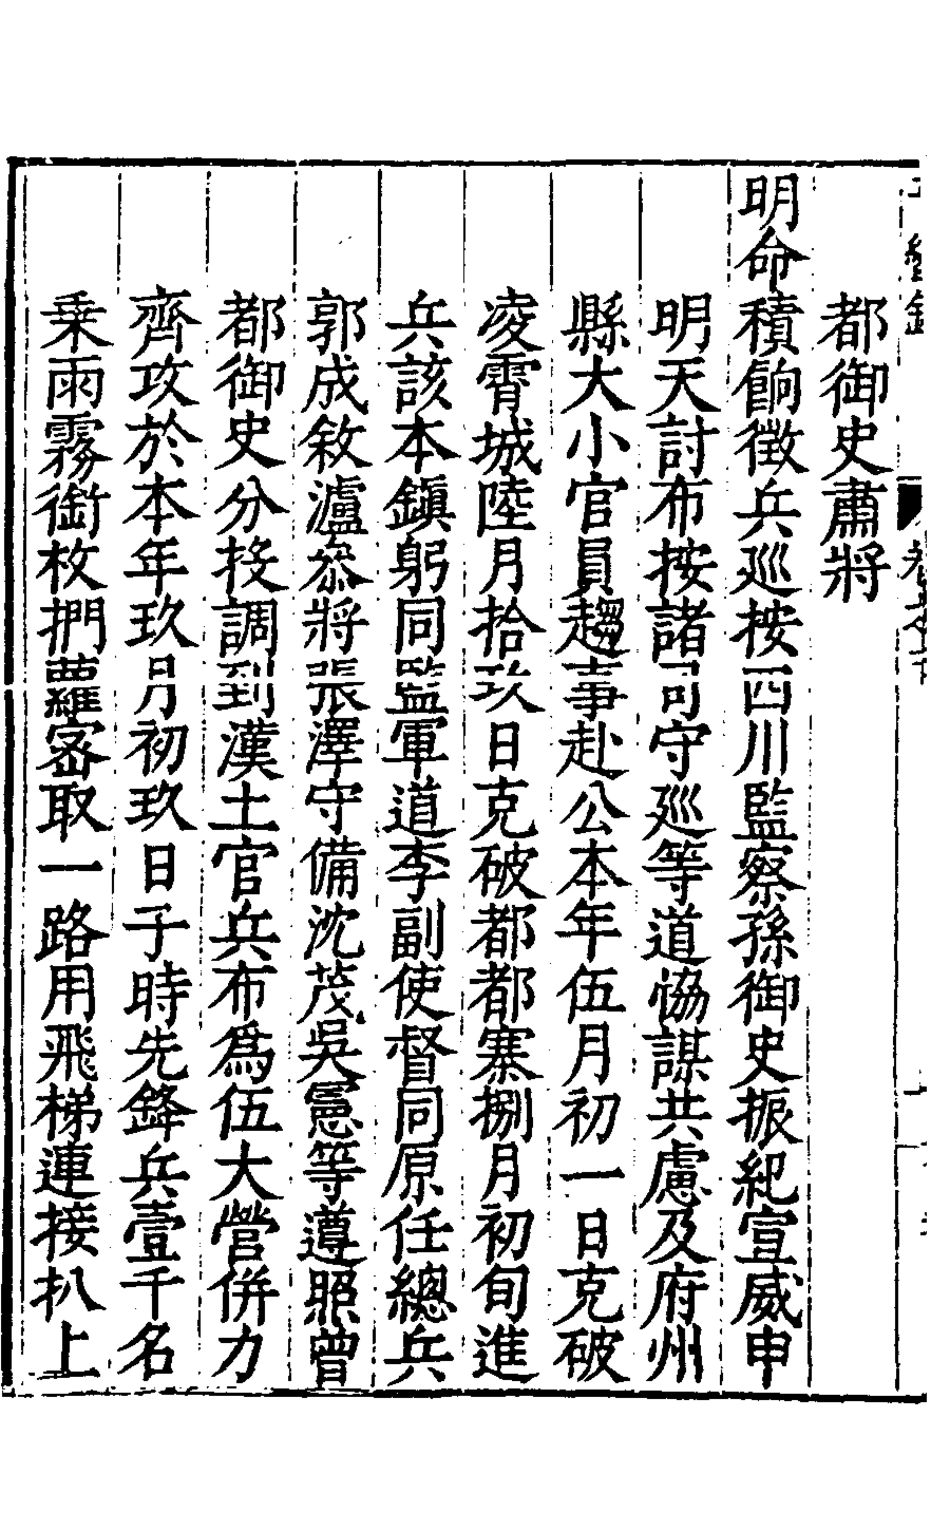 都御史肅將
明命積餉徵兵巡按四川監察孫御史振紀宣威申
明天討布按諸司守廵等道恊謀共慮及府州
縣大小官員趨事赴公本年伍月初一日克破
凌霄城陸月拾玖日克破都都寨捌月初旬進
兵該本鎮躬同監軍道李副使督同原任總兵
郭成敘瀘叅將張澤守備沈茂吳憲等遵照曾
都御史分投調到漢土官兵布爲伍大營併力
齊攻於本年玖月初玖日子時先鋒兵壹千名
乗雨霧銜枚捫蘿密取一路用飛梯連接扒上